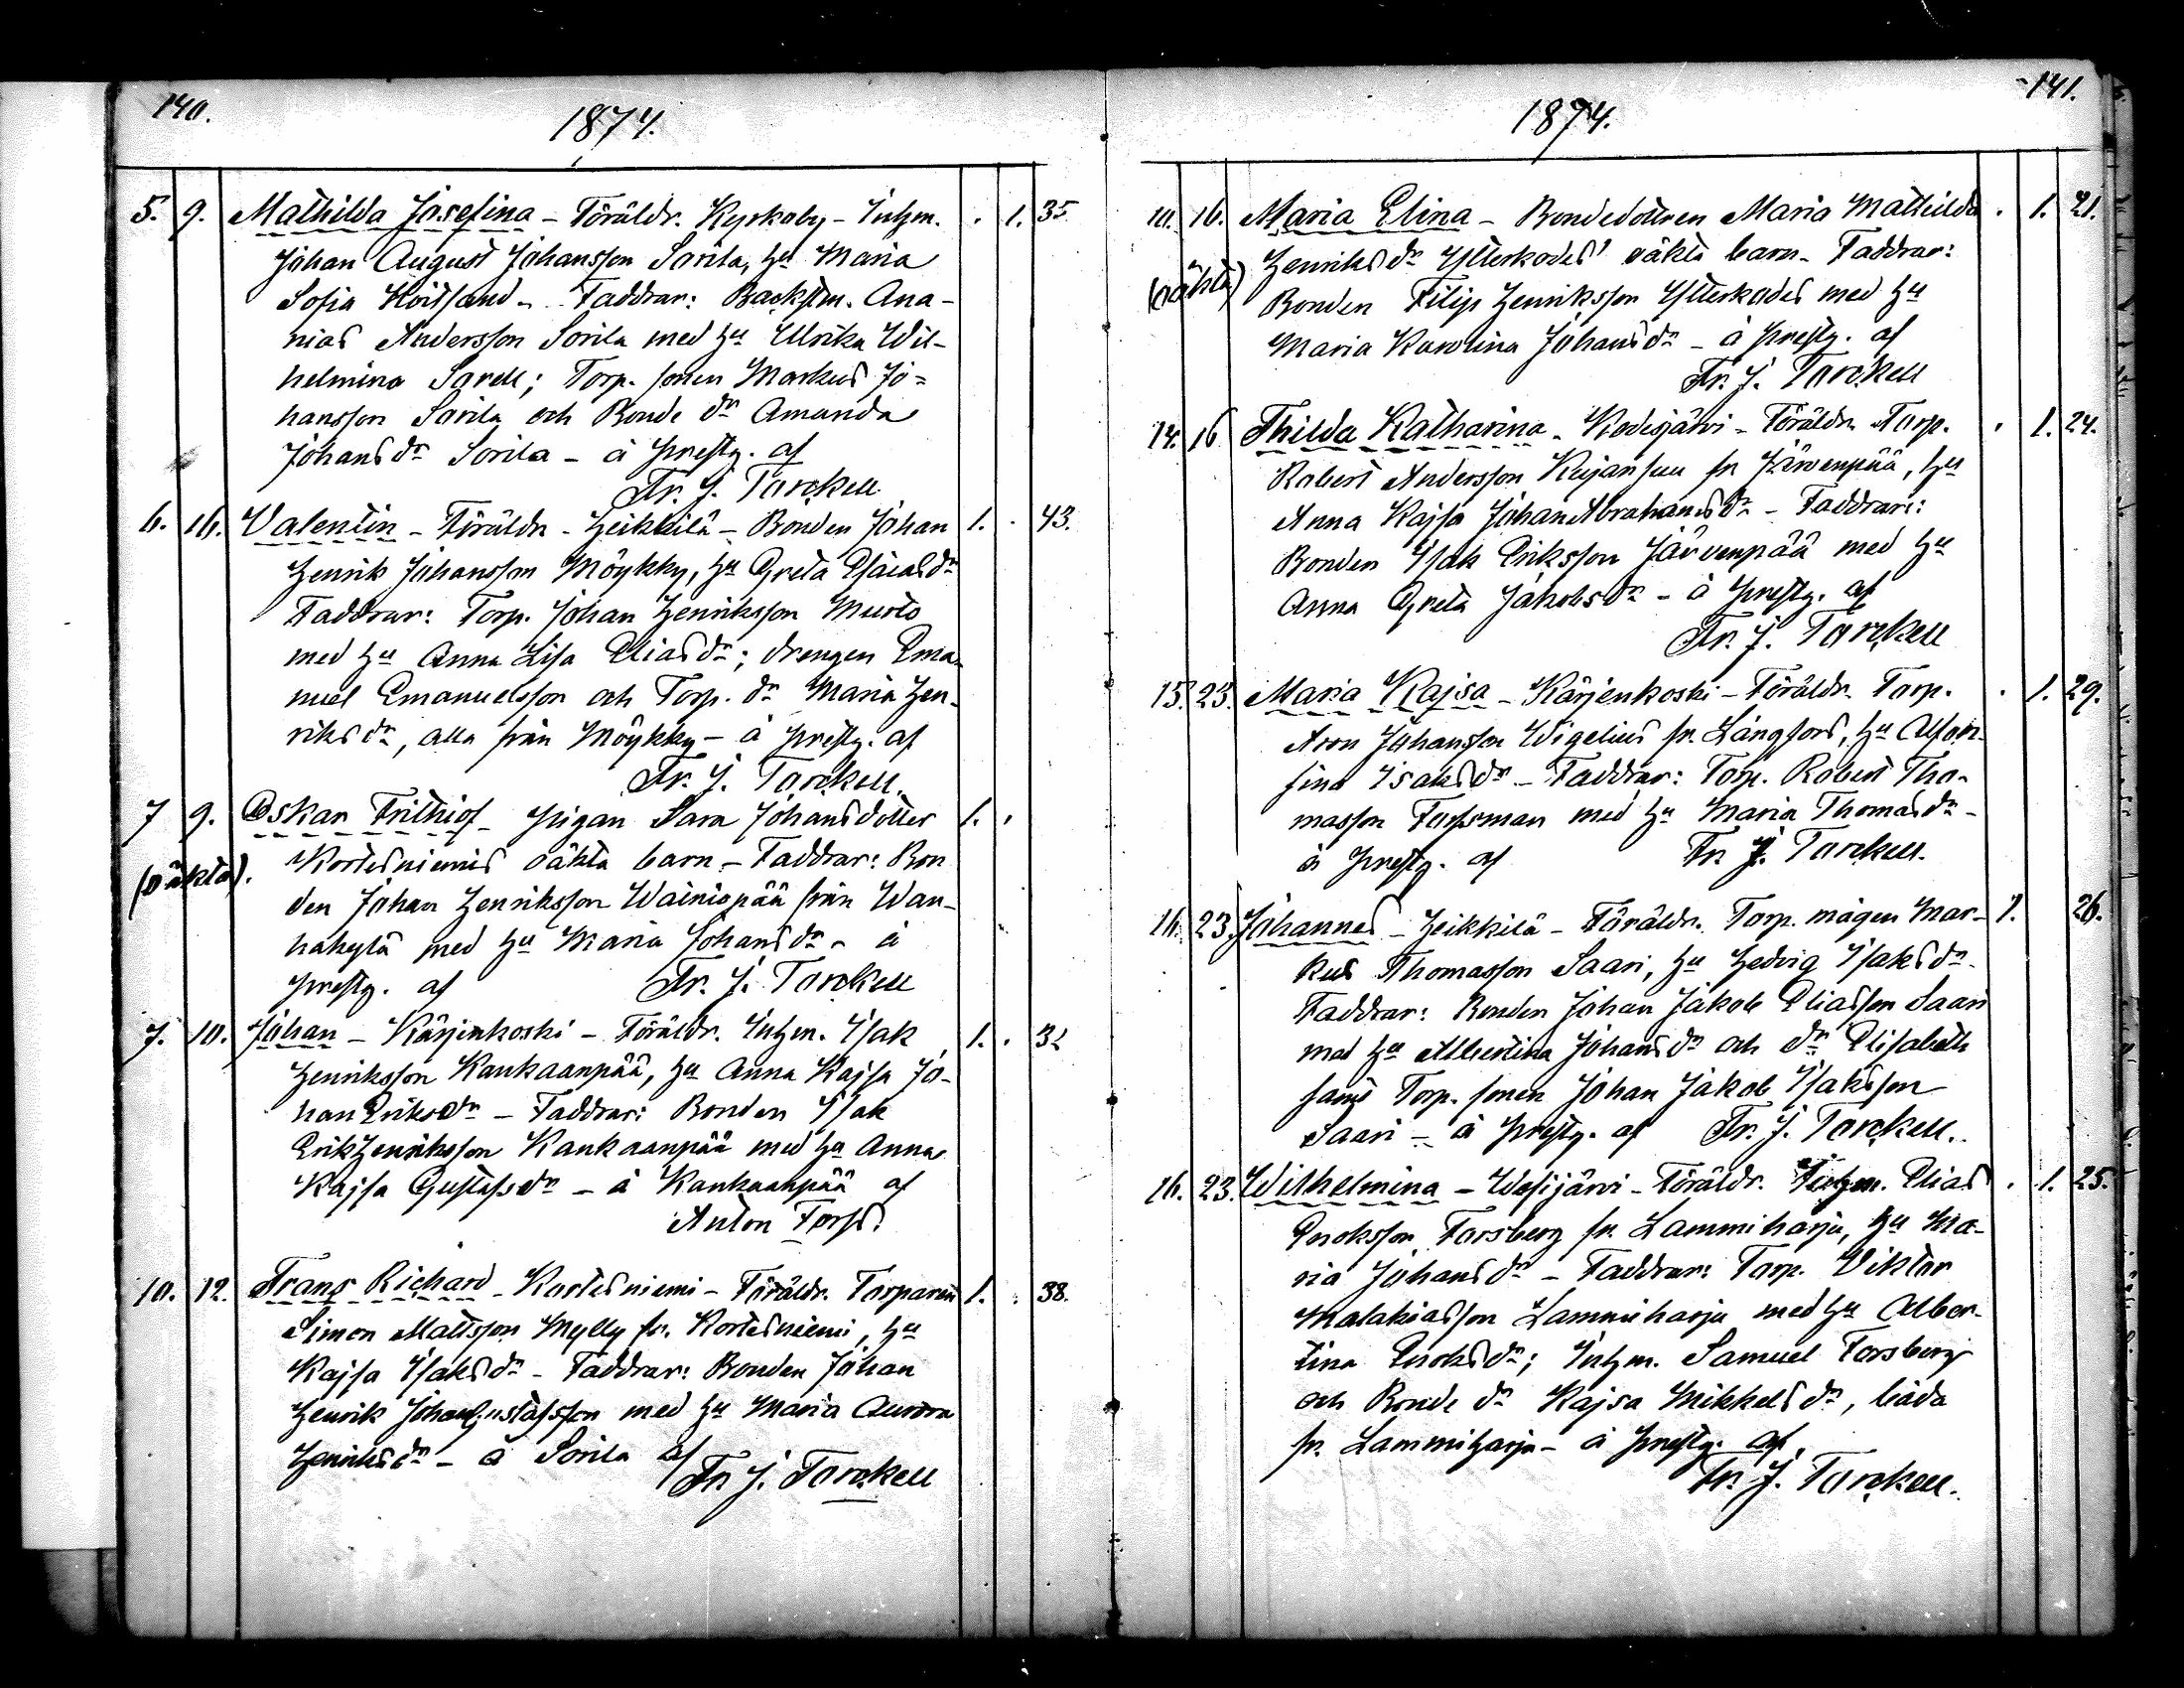 140.
1874.
5. 9. Mathilda Josefina - Föräldr. Kyrkoby - Inhm. . 1. 35
Johan August Johansson Sorila, Hu Maria
Sofia - Faddrar: Backstm. Ana-
nias Andersson Sorila med Hu Ulrika Wil-
helmina Sarell; Torp. sonen Markus Jo=
hansson Sorila och Bonde dr Amanda
Johansdr Sorila - å prestg. af
Fr. J. Tarckell
6. 16. Valentin - Föräldr - Heikkilä - Bonden Johan 1. . 43.
Henrik Johansson Möykky, Hu Greta Esaiasdr
Faddrar: Torp. Johan Henriksson Musto
med Hu Anna Lisa Eliasdr; drengen Ema-
nuel Emanuelsson och Torp. dr Maria Hen-
riksdr, alla från Möykky - å prestg. af
Fr. J. Tarckell.
7 9. Oskar Frithiof - pigan Sara Johansdotter 1. .
(oäkta). Kortesniemis oäkta barn - Faddrar: Bon
den Johan Henriksson Wainiopää från Wan-
hakylä med Hu Maria Johansdr - å
prestg. af Fr. J. Tarckell
7. 10. Johan - Kärjenkoski - Föräldr. Inhm. Isak 1. . 32
Henriksson Kankaanpää, Hu Anna Kajsa Jo-
han Eriksdr - Faddrar: Bonden Isak
Erik Henriksson Kankaanpää med Hu Anna
Kajsa Gustafsdr - å Kankaanpää af
Anton Forss.
10. 12. Frans Richard - Kortesniemi - Föräldr. Torparen 1. . 38.
Simon Mattsson Mylly fr. Kortesniemi, Hu
Kajsa Isaksdr - Faddrar: Bonden Johan
Henrik Johan Gustafsson med Hu Maria Aurora
Henriksdr - å Sorila af
Fr. J. Tarckell
141.
1874.
10. 16. Maria Elina - Bondedottren Maria Mathilda . 1. 21.
(oäkta) Henriksdr Ytterkodes' oäkta barn - Faddrar:
Bonden Filip Henriksson Ytterkodes med Hu
Maria Karolina Johansdr - å prestg. af
Fr. J. Tarckell
14. 16 Thilda Katharina - Kodesjärvi - Föräldr. Torp. . 1. 24.
Robert Andersson Kujansuu fr Järvenpää, Hu
Anna Kajsa Johan Abrahamsdr - Faddrar:
Bonden Isak Eriksson Järvenpää med Hu
Anna Greta Jakobsdr - å prestg. af
Fr. J. Tarckell
15. 23. Maria Kajsa - Kärjenkoski - Föräldr. Torp. . 1. 29.
Aron Johansson Wigelius fr. Långfors, Hu Alfon-
sina Isaksdr - Faddrar: Torp. Robert Tho-
masson Forsman med Hu Maria Thomasdr -
å prestg. af Fr J. Tarckell.
16. 23. Johannes - Heikkilä - Föräldr. Torp. mågen Mar- 1. 26.
kus Thomasson Saari, Hu Hedvig Isaksdr -
Faddrar: Bonden Johan Jakob Eliasson Saari
med Hu Albertina Johansdr och dr Elisabeth
samt Torp. sonen Johan Jakob Isaksson
Saari - å prestg. af Fr. J. Tarckell.
16. 23. Wilhelmina - Wesijärvi - Föräldr. Inhm. Elias . 1. 25.
Enoksson Forsberg fr. Lammiharju, Hu Ma-
ria Johansdr - Faddrar: Torp. Viktor
Malakiasson Lammiharju med Hu Alber-
tina Enoksdr; Inhm. Samuel Forsberg
och Bonde dr Kajsa Mikkelsdr, båda
fr. Lammiharju - å prestg. af
Fr. J. Tarckell.